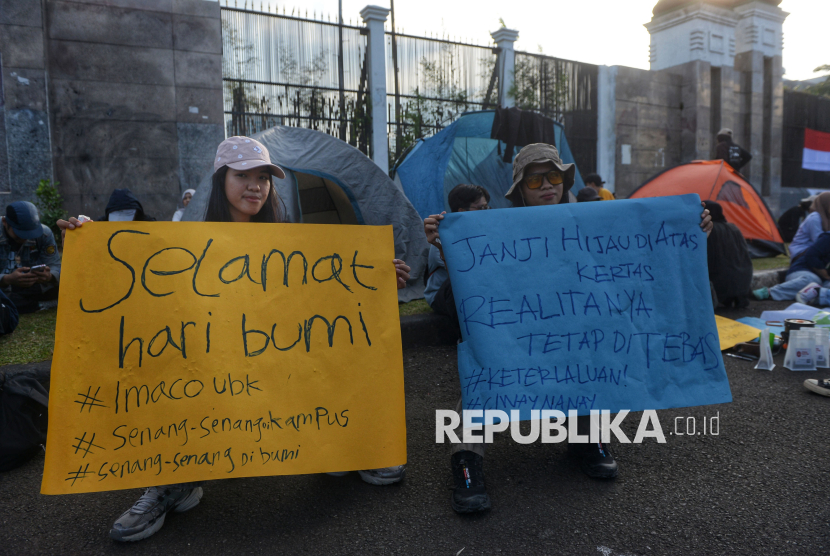 Selamat
hari bumi
#Imaco ubk
#Senang-senang di kampus
#Senang-senang Di bumi
JANJI HIJAU DI ATAS
KERTAS
REALITANYA
TETAP DI TEBAS
#KETERLALUAN!
REPUBLIKA.co.id